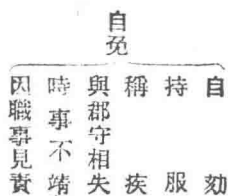 自免
自劾
持服
稱疾
與郡守相失
時事不靖
因職事見責